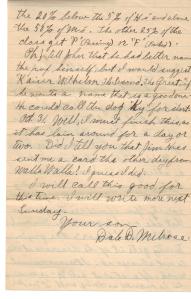 the 20% below the 5% of H's and above
the 50% of M's. The other 25% of the
class get P (Passing) or "F" (Failure).
Oh, tell John that he had better name
the dog himself, but I would suggest
Kaiser Wilhelm, the Second, the Great, if
he wants a name that is a good one.
He could call the dog Kg for short
Oct 31 Well, I must finish this as
it has lain around for a day or
two. Did I tell you that Jim Ross
sent me a card the other day from
Walla Walla? I guess I did.
I will call this good for
this time. I will write more next
Sunday.
Your son
Dale D. Melrose